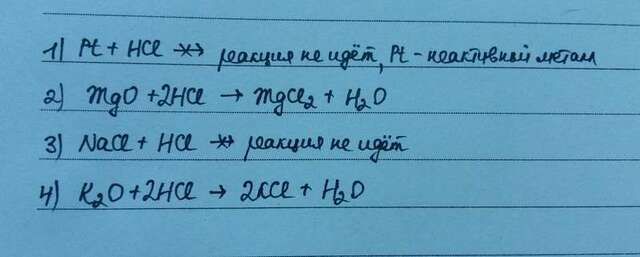 1) Pt + HCl ↛ реакция не идёт, Pt - неактивный металл
2) MgO + 2HCl → MgCl₂ + H₂O
3) NaCl + HCl ↛ реакция не идёт
4) K₂O + 2HCl → 2KCl + H₂O